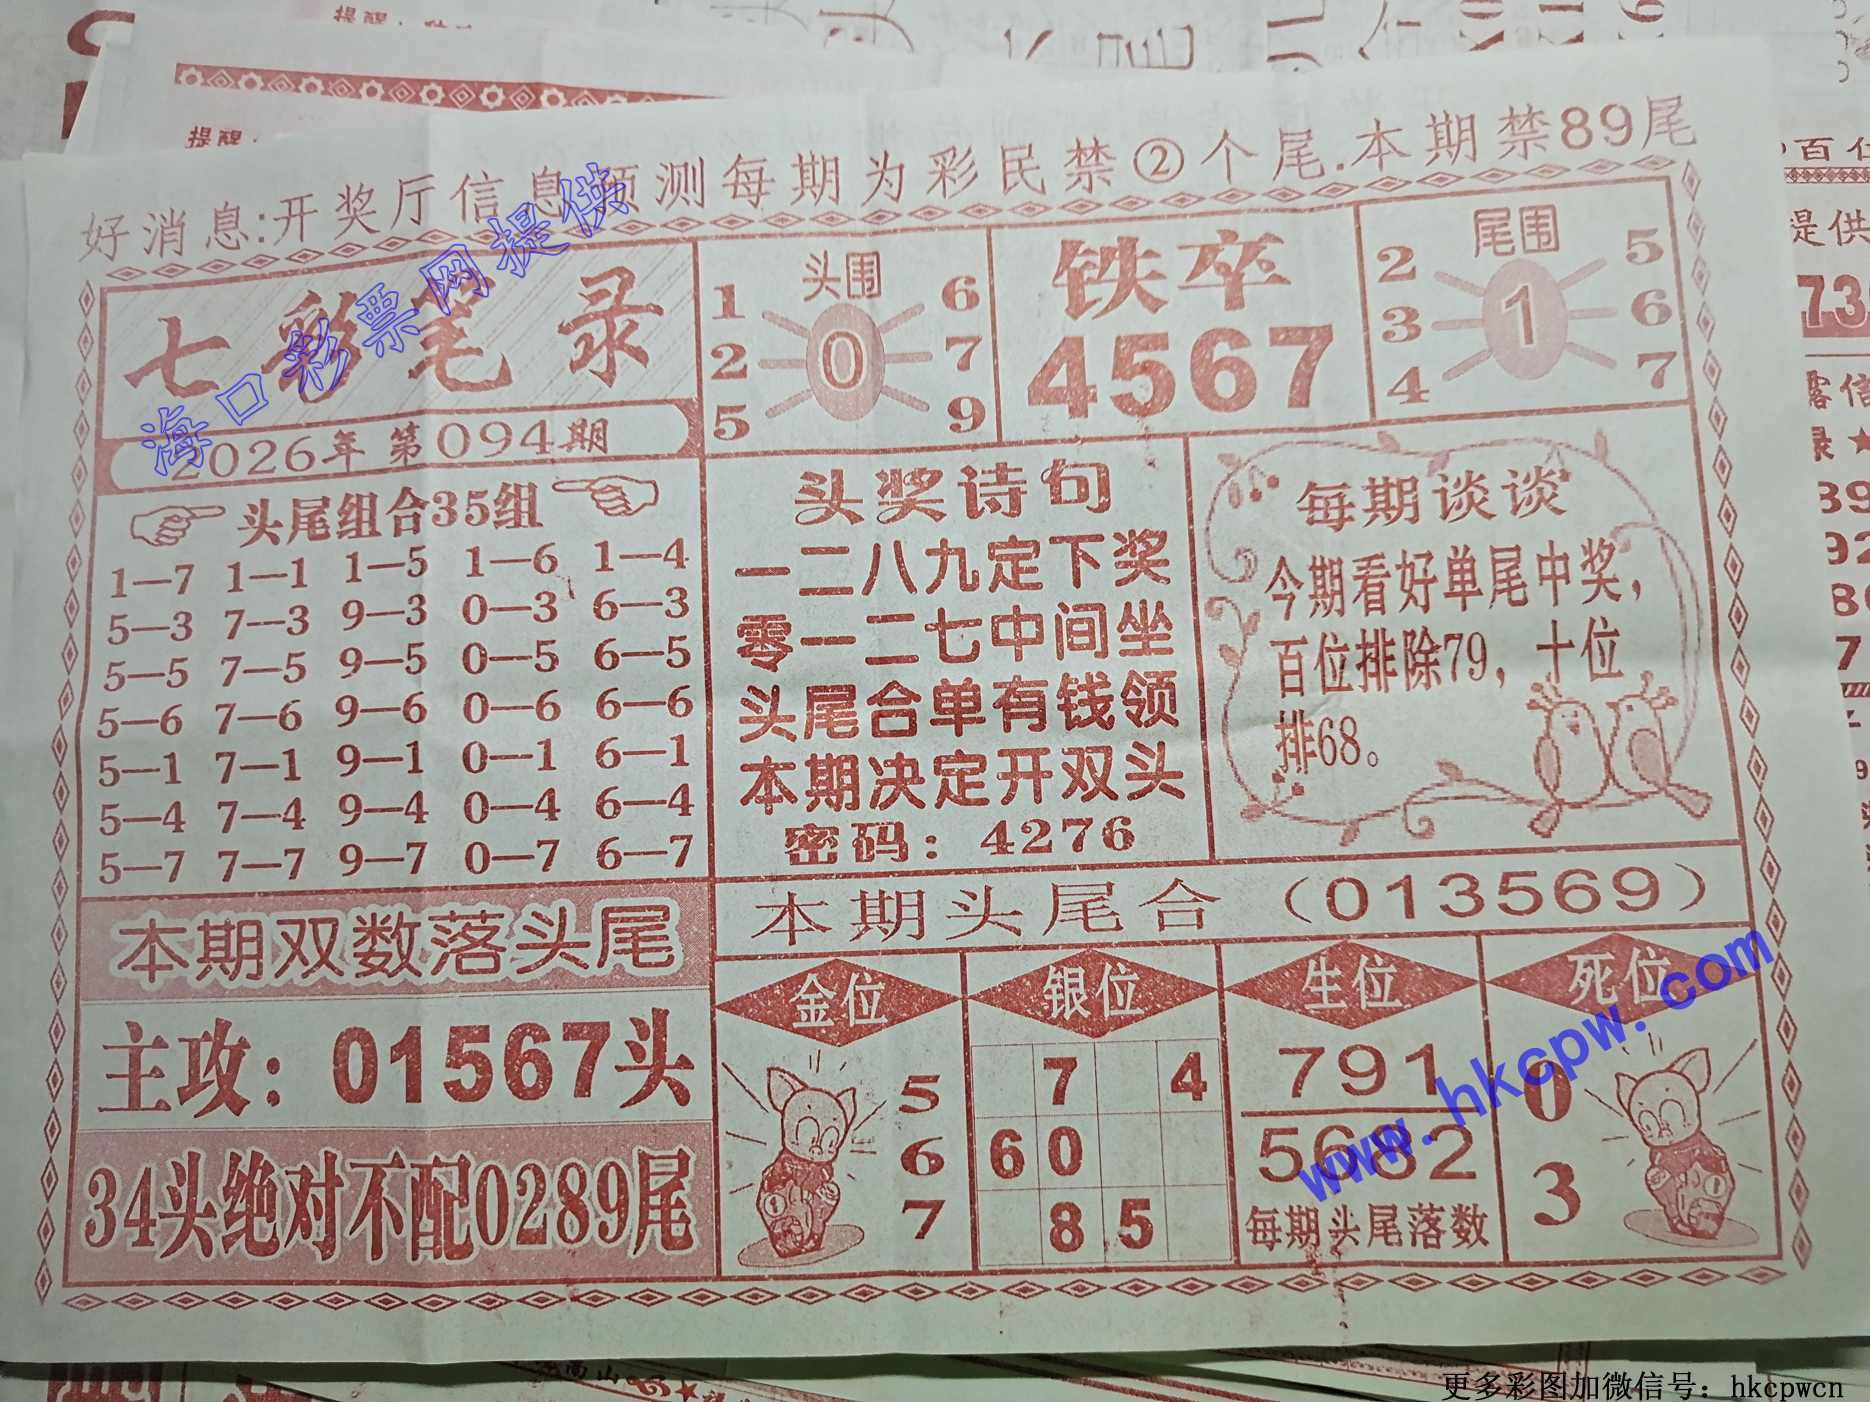 好消息:开奖厅信息预测每期为彩民禁②个尾.本期禁89尾
七彩笔录
2026年第094期
头围
1 6
2 0 7
5 9
铁卒
4567
尾围
2 5
3 1 6
4 7
头尾组合35组
1—7 1—1 1—5 1—6 1—4
5—3 7—3 9—3 0—3 6—3
5—5 7—5 9—5 0—5 6—5
5—6 7—6 9—6 0—6 6—6
5—1 7—1 9—1 0—1 6—1
5—4 7—4 9—4 0—4 6—4
5—7 7—7 9—7 0—7 6—7
头奖诗句
一二八九定下奖
零一二七中间坐
头尾合单有钱领
本期决定开双头
密码：4276
每期谈谈
今期看好单尾中奖，
百位排除79，十位
排68。
本期双数落头尾
主攻：01567头
34头绝对不配0289尾
本期头尾合（013569）
金位
5
6
7
银位
7 4
60
85
生位
791
5682
每期头尾落数
死位
0
3
海口彩票网提供
www.hkcpw.com
提醒
提醒
百位
提供
73
露信
录★
39
92
7
更多彩图加微信号：hkcpwcn